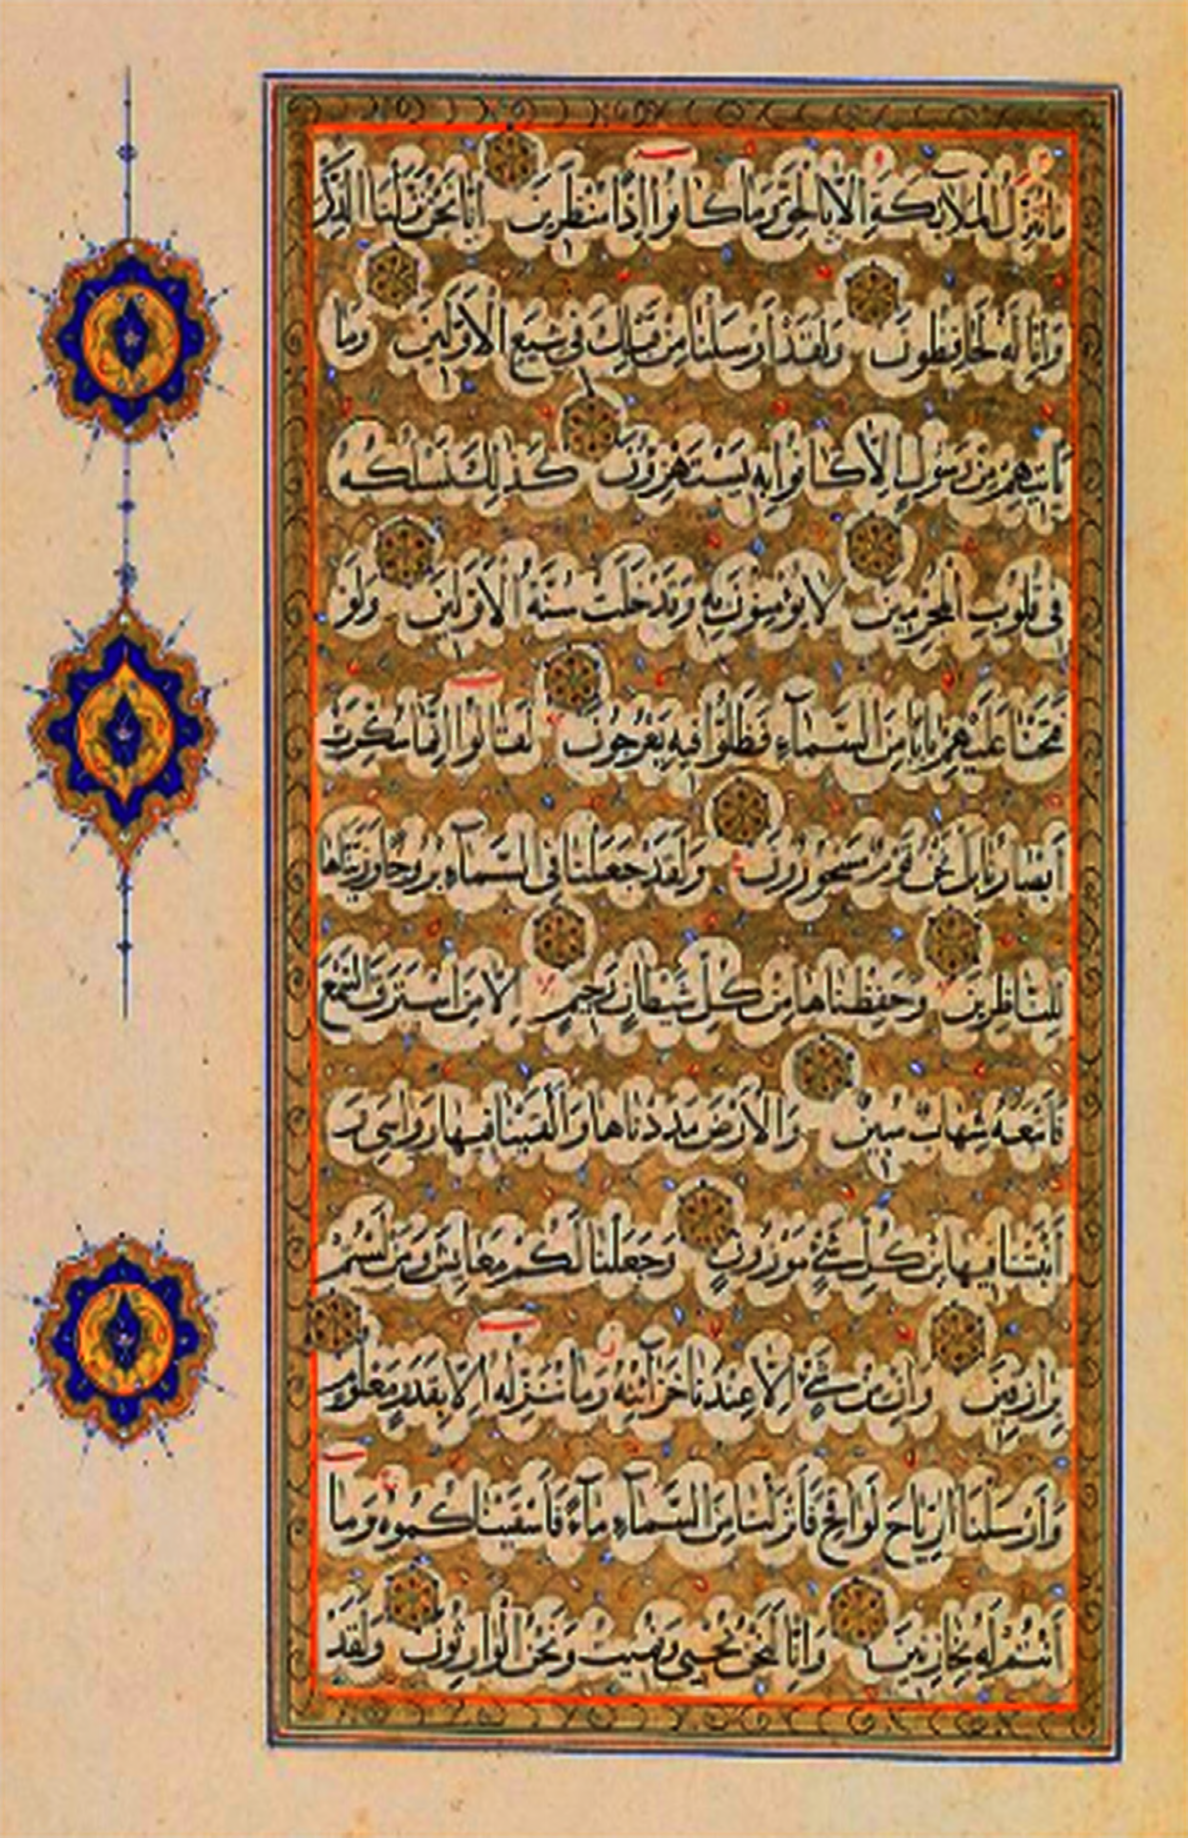 ما نُنَزِّلُ الْمَلَآئِكَةَ اِلَّا بِالْحَقِّ وَمَا كَانُوا اِذًا مُنْظَرِينَ اِنَّا نَحْنُ نَزَّلْنَا الذِّكْرَ
وَاِنَّا لَهُ لَحَافِظُونَ وَلَقَدْ اَرْسَلْنَا مِنْ قَبْلِكَ فِى شِيَعِ الْاَوَّلِينَ وَمَا
يَاْتِيهِمْ مِنْ رَسُولٍ اِلَّا كَانُوا بِهِ يَسْتَهْزِؤُنَ كَذٰلِكَ نَسْلُكُهُ
فِى قُلُوبِ الْمُجْرِمِينَ لَا يُؤْمِنُونَ بِهِ وَقَدْ خَلَتْ سُنَّةُ الْاَوَّلِينَ وَلَوْ
فَتَحْنَا عَلَيْهِمْ بَابًا مِنَ السَّمَآءِ فَظَلُّوا فِيهِ يَعْرُجُونَ لَقَالُوا اِنَّمَا سُكِّرَتْ
اَبْصَارُنَا بَلْ نَحْنُ قَوْمٌ مَسْحُورُونَ وَلَقَدْ جَعَلْنَا فِى السَّمَآءِ بُرُوجًا وَزَيَّنَّاهَا
لِلنَّاظِرِينَ وَحَفِظْنَاهَا مِنْ كُلِّ شَيْطَانٍ رَجِيمٍ اِلَّا مَنِ اسْتَرَقَ السَّمْعَ
فَاَتْبَعَهُ شِهَابٌ مُبِينٌ وَالْاَرْضَ مَدَدْنَاهَا وَاَلْقَيْنَا فِيهَا رَوَاسِىَ وَ
اَنْبَتْنَا فِيهَا مِنْ كُلِّ شَىْءٍ مَوْزُونٍ وَجَعَلْنَا لَكُمْ فِيهَا مَعَايِشَ وَمَنْ لَسْتُمْ
لَهُ بِرَازِقِينَ وَاِنْ مِنْ شَىْءٍ اِلَّا عِنْدَنَا خَزَآئِنُهُ وَمَا نُنَزِّلُهُ اِلَّا بِقَدَرٍ مَعْلُومٍ
وَاَرْسَلْنَا الرِّيَاحَ لَوَاقِحَ فَاَنْزَلْنَا مِنَ السَّمَآءِ مَآءً فَاَسْقَيْنَاكُمُوهُ وَمَا
اَنْتُمْ لَهُ بِخَازِنِينَ وَاِنَّا لَنَحْنُ نُحْيِى وَنُمِيتُ وَنَحْنُ الْوَارِثُونَ وَلَقَدْ